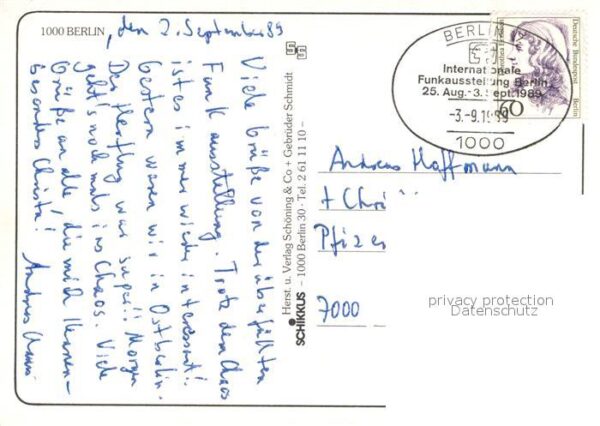 1000 BERLIN, den 2. September 89
Viele Grüße von der überfüllten
Funkausstellung. Trotz dem Chaos
ist es immer wieder interessant!
Gestern waren wir in Ostberlin.
Der Herflug war super!! Morgen
geht's nochmals ins Chaos. Viele
Grüße an alle, die mich kennen -
besonders Christa!
Andreas
Herst. u. Verlag Schöning & Co + Gebrüder Schmidt
SCHIKKUS – 1000 Berlin 30 · Tel. 2 61 11 10 –
BERLIN
Internationale
Funkausstellung Berlin
25. Aug.-3. Sept. 1989
-3.-9.1989
1000
60
Deutsche Bundespost Berlin
Andreas Hoffmann
+ Chri
Pfizer
7000
privacy protection
Datenschutz